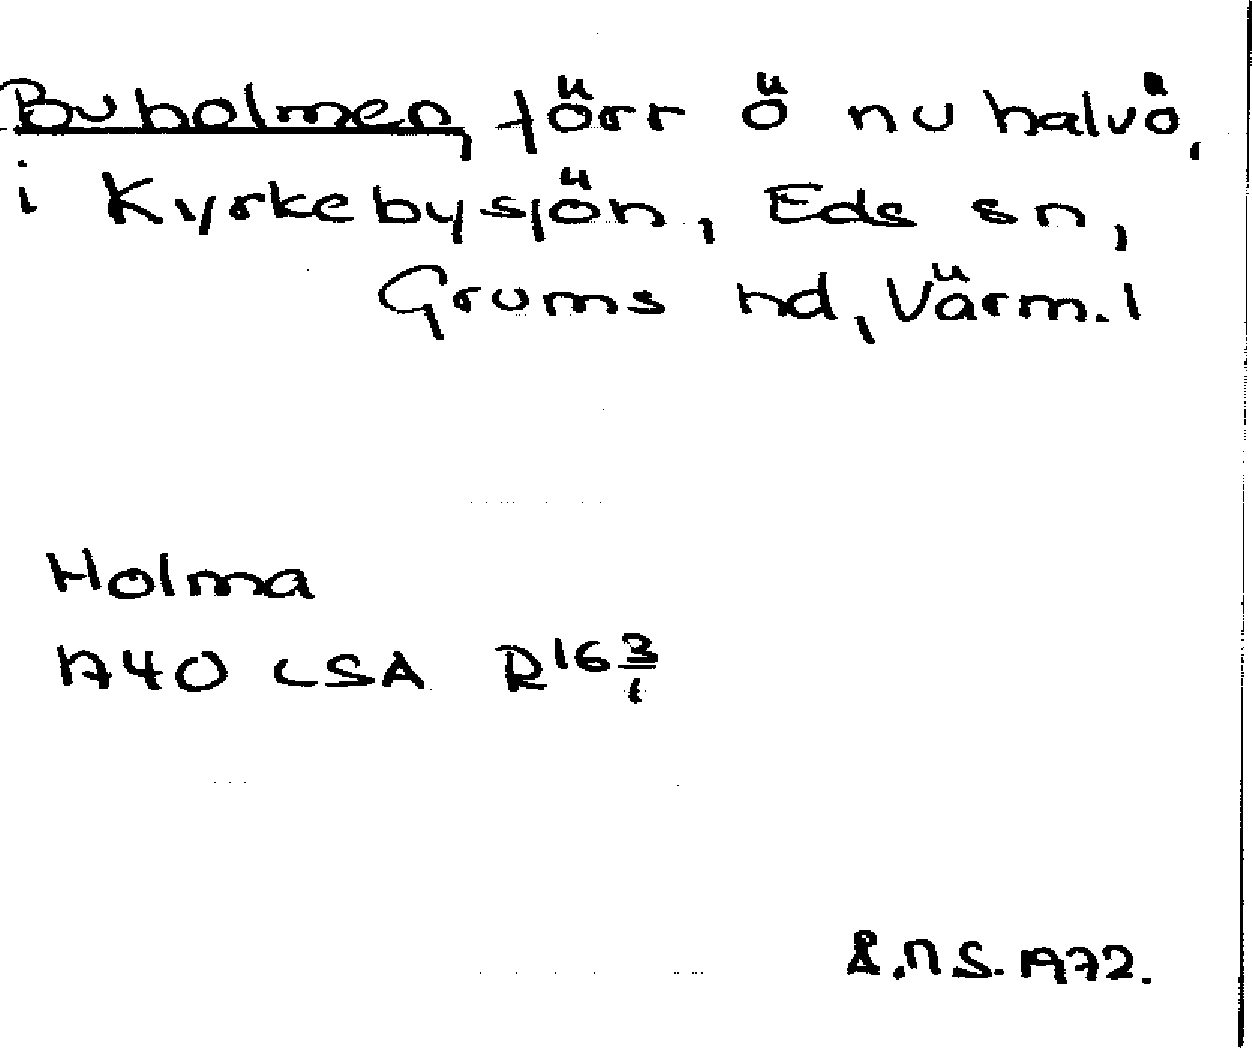 Buholmen, förr ö nu halvö,
i Kyrkebysjön, Eds sn,
Grums hd, Värm. l
Holma
1740 LSA R16 3/1
R.N S. 1972.